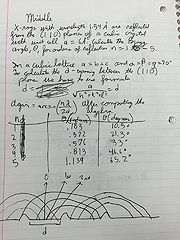 Middle
X-rays with wavelength 1.54 Å are reflected
from the (110) planes of a cubic crystal
with unit cell a = 6Å. Calculate the Bragg
angle, θ, for orders of reflection n = 5.
In a cubic lattice a=b=c and α=β=γ=90°
To calculate the d-spacing between the (110)
plane we have to use formula:
d = a / √h²+k²+l²
Again: nλ / 2d After computing the
algebra:
n θ (radians) θ (degrees)
1 .183 10.5°
2 .372 21.3°
.576 33°
.813 46.6°
5 1.139 65.2°
0 1st 2nd
d